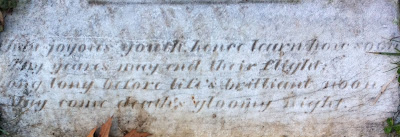 joyous youth, hence learn how soon
Thy years may end their flight;
long, before life's brilliant noon
May come death's gloomy night.